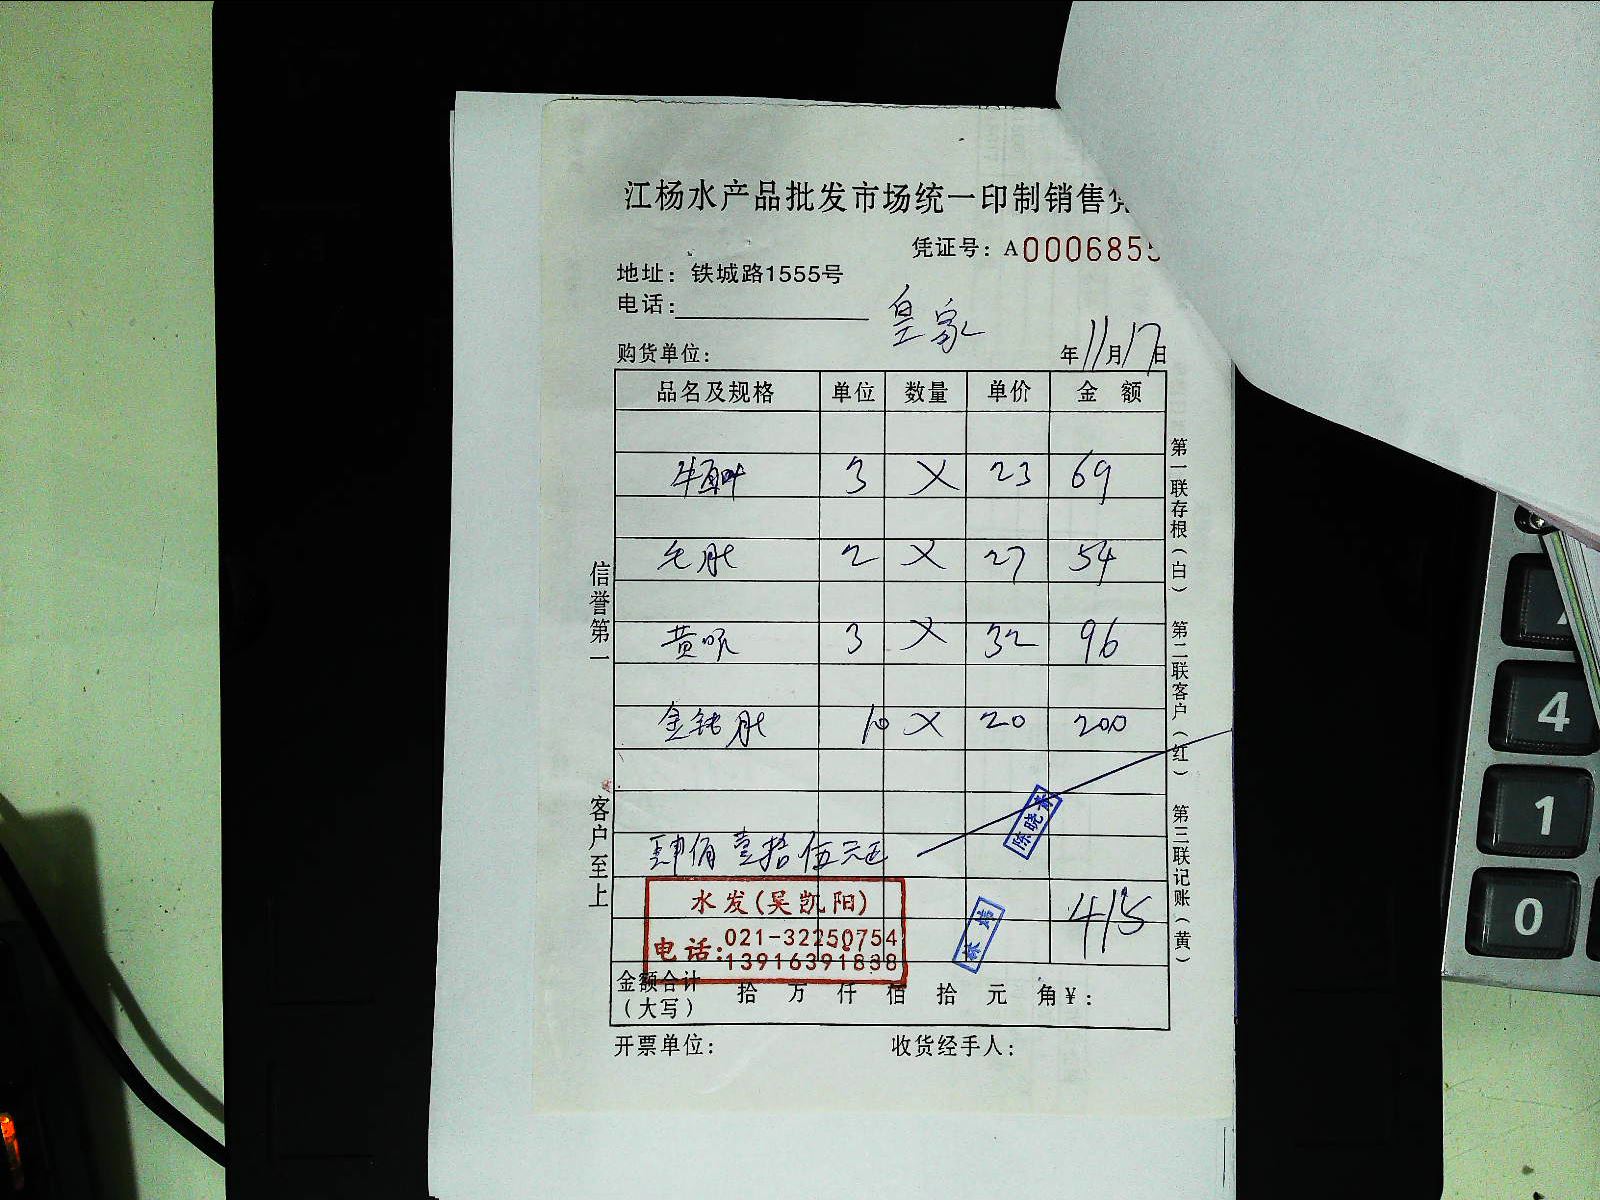 江杨水产品批发市场统一印制销售
凭证号：A 0006855
地址：铁城路1555号
电话：
皇家
购货单位：
年 11 月 17 日
品名及规格 单位 数量 单价 金 额
3 × 23 69
毛肚 2 × 27 54
黄喉 3 × 32 96
金钱肚 10 × 20 200
肆佰壹拾伍元正
陈晓
水发(吴凯阳)
电话:021-32250754
13916391838
415
金额合计
(大写) 拾 万 仟 佰 拾 元 角 ¥：
开票单位： 收货经手人：
信誉第一
客户至上
第一联存根(白)
第二联客户(红)
第三联记账(黄)
4
1
0